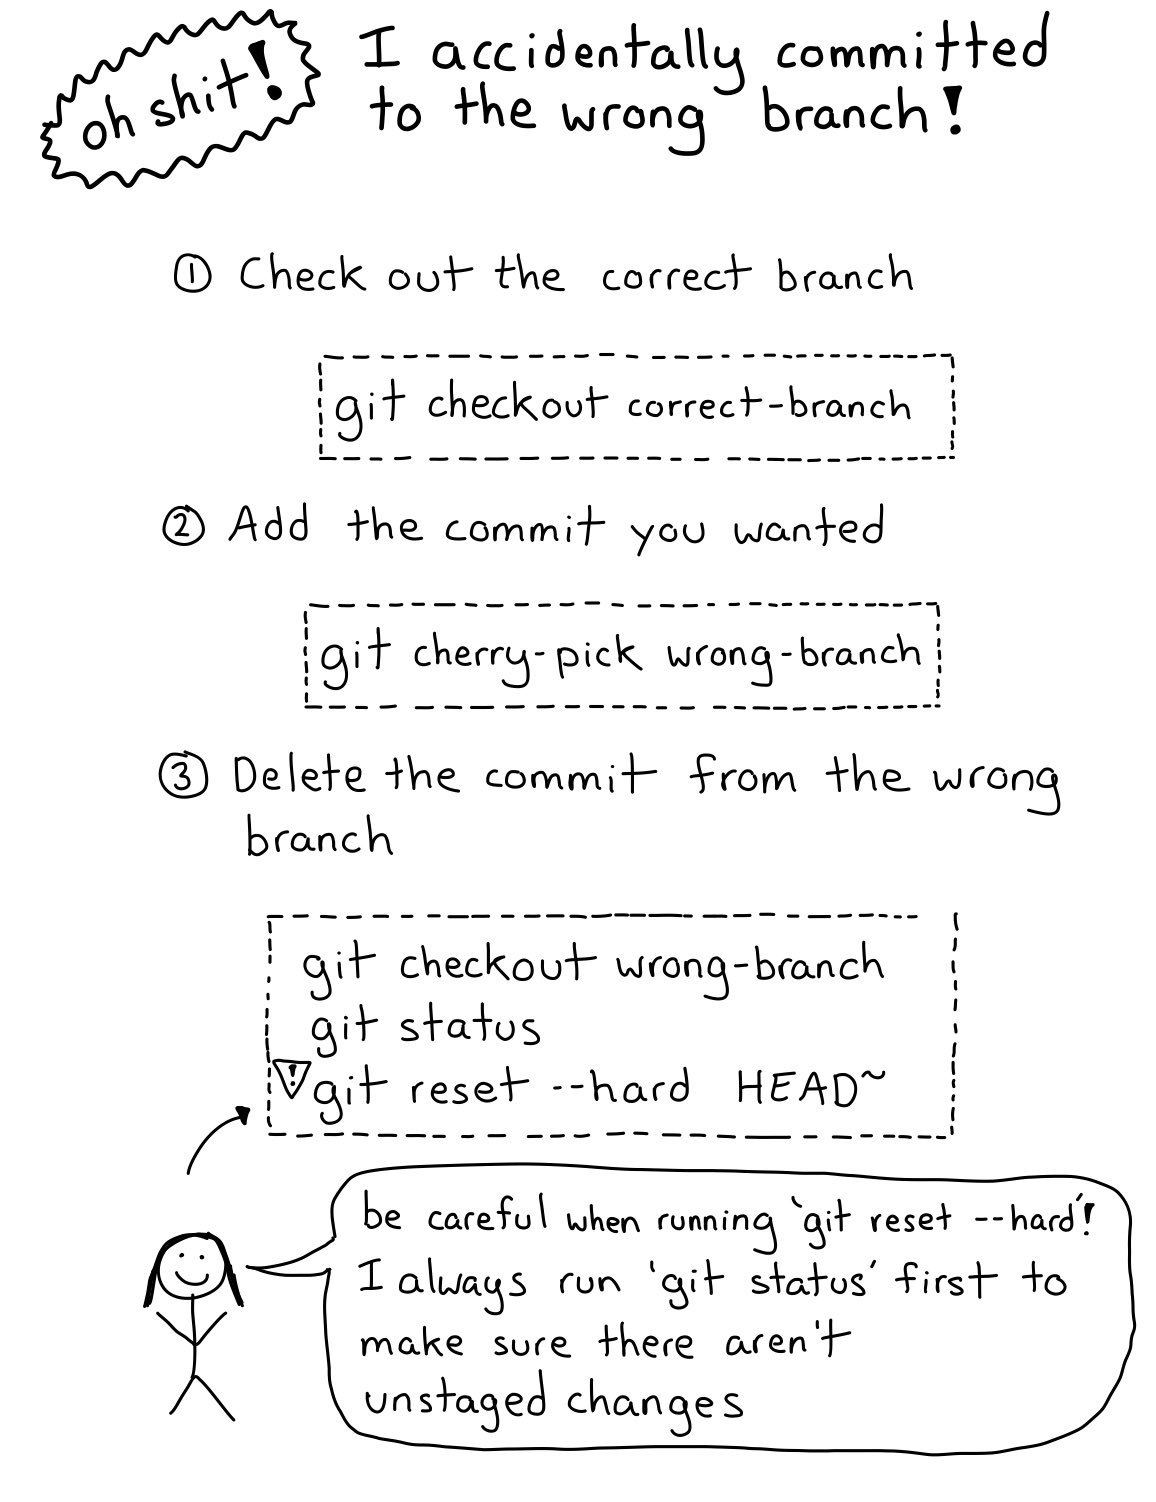 oh shit!
I accidentally committed
to the wrong branch!
① Check out the correct branch
git checkout correct-branch
② Add the commit you wanted
git cherry-pick wrong-branch
③ Delete the commit from the wrong
branch
git checkout wrong-branch
git status
! git reset --hard HEAD~
be careful when running 'git reset --hard'!
I always run 'git status' first to
make sure there aren't
unstaged changes